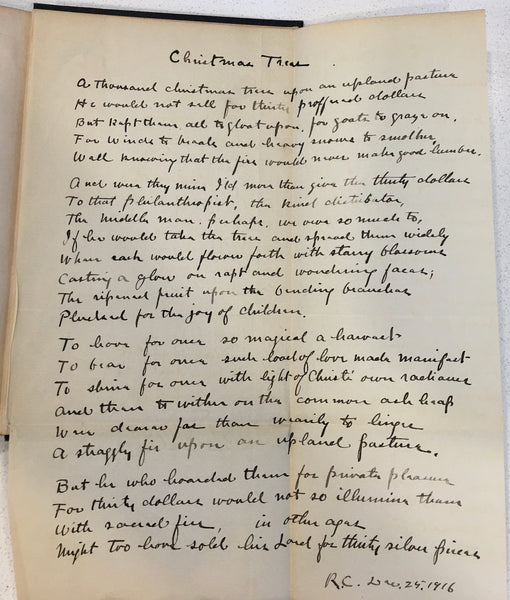 Christmas Trees
A Thousand Christmas trees upon an upland pasture
He would not sell for thirty proffered dollars
But kept them all to gloat upon, for goats to graze on,
For Winds to break and heavy snows to smother
Well knowing that the firs would never make good lumber.
And were they mine I'd more than give the thirty dollars
To that philanthropist, the kind distributor,
The Middle man, perhaps, we owe so much to,
If he would take the trees and spread them widely
Where each would flower forth with starry blossoms
Casting a glow on rapt and wondering faces;
The ripened fruit upon the bending branches
Plucked for the joy of children.
To have for once so magical a harvest
To bear for once such load of love made manifest
To shine for once with light of Christ's own radiance
And then to wither on the common ash heap
Were dearer far than wearily to linger
A straggly fir upon an upland pasture.
But he who hoarded them for private pleasure
For thirty dollars would not so illumine them
With sacred fire, in other ages
Might too have sold his Lord for thirty silver pieces
R.C. Dec. 24. 1916